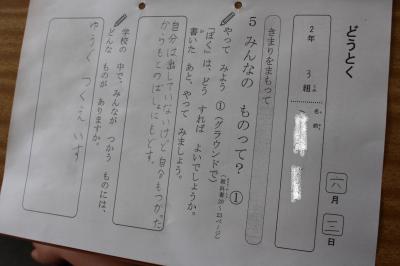 どうとく
2年 3組 名前(
六月 三日
きまりをまもって
5 みんなの ものって? ①
やって みよう ① (グラウンドで) (教科書20~23ページ)
「ぼく」は、どう すれば よいでしょうか。
書いた あと、やって みましょう。
自分は出していないけど自分もつかった
からもとのばしょにもどす。
学校の 中で、みんなが つかう ものには、
どんな ものが ありますか。
ゆうぐ つくえ いす